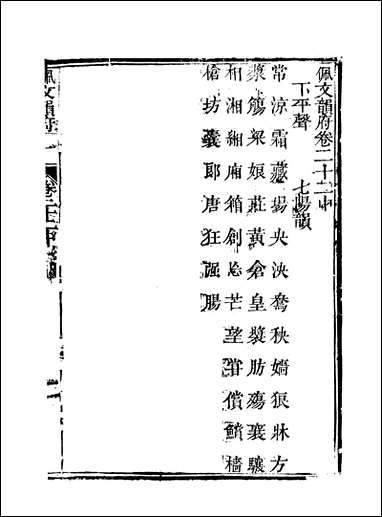 佩文韻府卷二十二中
下平聲 七陽韻
常涼霜藏場央泱鴦秧嬙狼牀方
漿觴粱娘莊黃倉皇漿肪殤襄驤
相湘緗廂箱創忘芒堂嘗償鱨檣
槍坊囊郎唐狂強腸
佩文韻府
卷二十二中